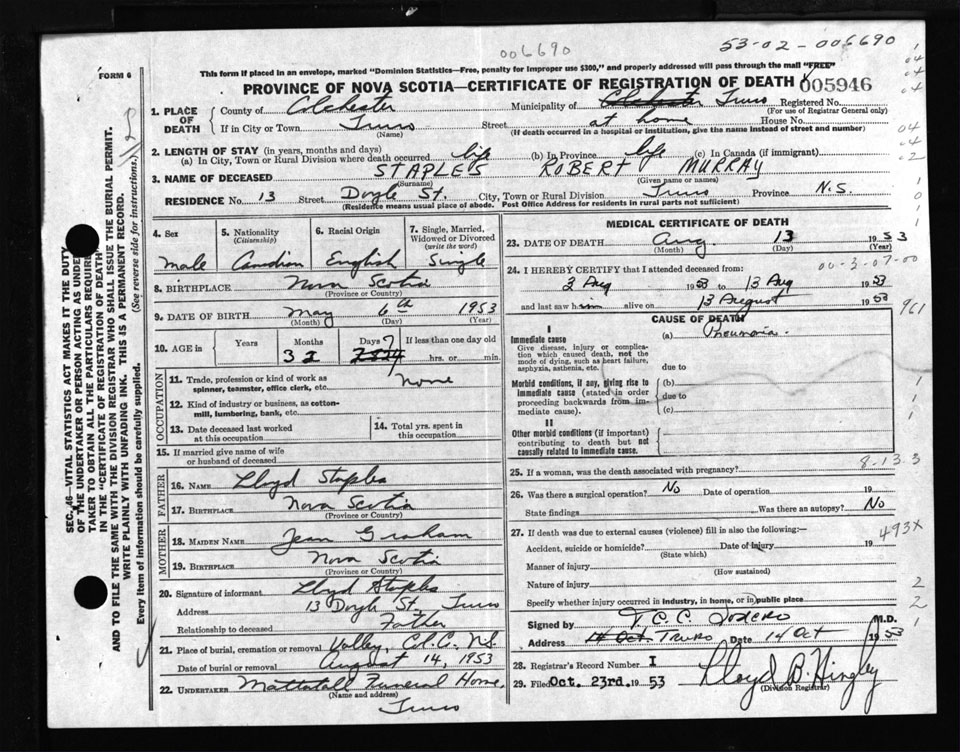 006690
53-02-006690
FORM 6
This form if placed in an envelope, marked "Dominion Statistics—Free, penalty for improper use $300," and properly addressed will pass through the mail "FREE"
PROVINCE OF NOVA SCOTIA—CERTIFICATE OF REGISTRATION OF DEATH 005946
1. PLACE OF DEATH
County of Colchester Municipality of Colchester Truro Registered No.
(For use of Registrar General only)
If in City or Town Truro Street at home House No.
(Name) (If death occurred in a hospital or institution, give the name instead of street and number)
2. LENGTH OF STAY (in years, months and days)
(a) In City, Town or Rural Division where death occurred life (b) In Province life (c) In Canada (if immigrant)
3. NAME OF DECEASED STAPLES ROBERT MURRAY
(Surname) (Given name or names)
RESIDENCE No. 13 Street Doyle St. City, Town or Rural Division Truro Province N.S.
(Residence means usual place of abode. Post Office Address for residents in rural parts not sufficient)
4. Sex 5. Nationality (Citizenship) 6. Racial Origin 7. Single, Married, Widowed or Divorced (write the word)
Male Canadian English Single
8. BIRTHPLACE Nova Scotia
(Province or Country)
9. DATE OF BIRTH May 6th 1953
(Month) (Day) (Year)
10. AGE in Years Months Days If less than one day old
3 7 hrs. or min.
OCCUPATION
11. Trade, profession or kind of work as spinner, teamster, office clerk, etc. none
12. Kind of industry or business, as cotton-mill, lumbering, bank, etc.
13. Date deceased last worked at this occupation
14. Total yrs. spent in this occupation
15. If married give name of wife or husband of deceased
FATHER
16. NAME Lloyd Staples
17. BIRTHPLACE Nova Scotia
(Province or Country)
MOTHER
18. MAIDEN NAME Jean Graham
19. BIRTHPLACE Nova Scotia
(Province or Country)
20. Signature of informant Lloyd Staples
Address 13 Doyle St, Truro
Relationship to deceased Father
21. Place of burial, cremation or removal Valley, Col. C. N.S.
Date of burial or removal August 14, 1953
22. UNDERTAKER Mattatall Funeral Home,
(Name and address)
Truro
MEDICAL CERTIFICATE OF DEATH
23. DATE OF DEATH Aug. 13 1953
(Month) (Day) (Year)
00-3-07-00
24. I HEREBY CERTIFY that I attended deceased from:
2 Aug 1953 to 13 Aug 1953
and last saw him alive on 13 August 1953
961
CAUSE OF DEATH
I
Immediate cause (a) Pneumonia.
Give disease, injury or complication which caused death, not the mode of dying, such as heart failure, asphyxia, asthenia, etc.
due to
Morbid conditions, if any, giving rise to immediate cause (stated in order proceeding backwards from immediate cause).
(b)
due to
(c)
II
Other morbid conditions (if important) contributing to death but not causally related to immediate cause.
8-13.3
25. If a woman, was the death associated with pregnancy?
26. Was there a surgical operation? No Date of operation 19
State findings Was there an autopsy? No
27. If death was due to external causes (violence) fill in also the following:—
493X
Accident, suicide or homicide? Date of injury 19
(State which)
Manner of injury
(How sustained)
Nature of injury
Specify whether injury occurred in industry, in home, or in public place
Signed by T.C.C. Sodero M.D.
Address 14 Oct. TRURO Date 14 Oct 1953
28. Registrar's Record Number 1
29. Filed Oct. 23rd. 1953 Lloyd B. Hingley
(Division Registrar)
SEC. 46—VITAL STATISTICS ACT MAKES IT THE DUTY
OF THE UNDERTAKER OR PERSON ACTING AS UNDERTAKER TO OBTAIN ALL THE PARTICULARS REQUIRED
IN THE "CERTIFICATE OF REGISTRATION OF DEATH"
AND TO FILE THE SAME WITH THE DIVISION REGISTRAR WHO SHALL ISSUE THE BURIAL PERMIT.
WRITE PLAINLY WITH UNFADING INK. THIS IS A PERMANENT RECORD.
Every item of information should be carefully supplied. (See reverse side for instructions.)